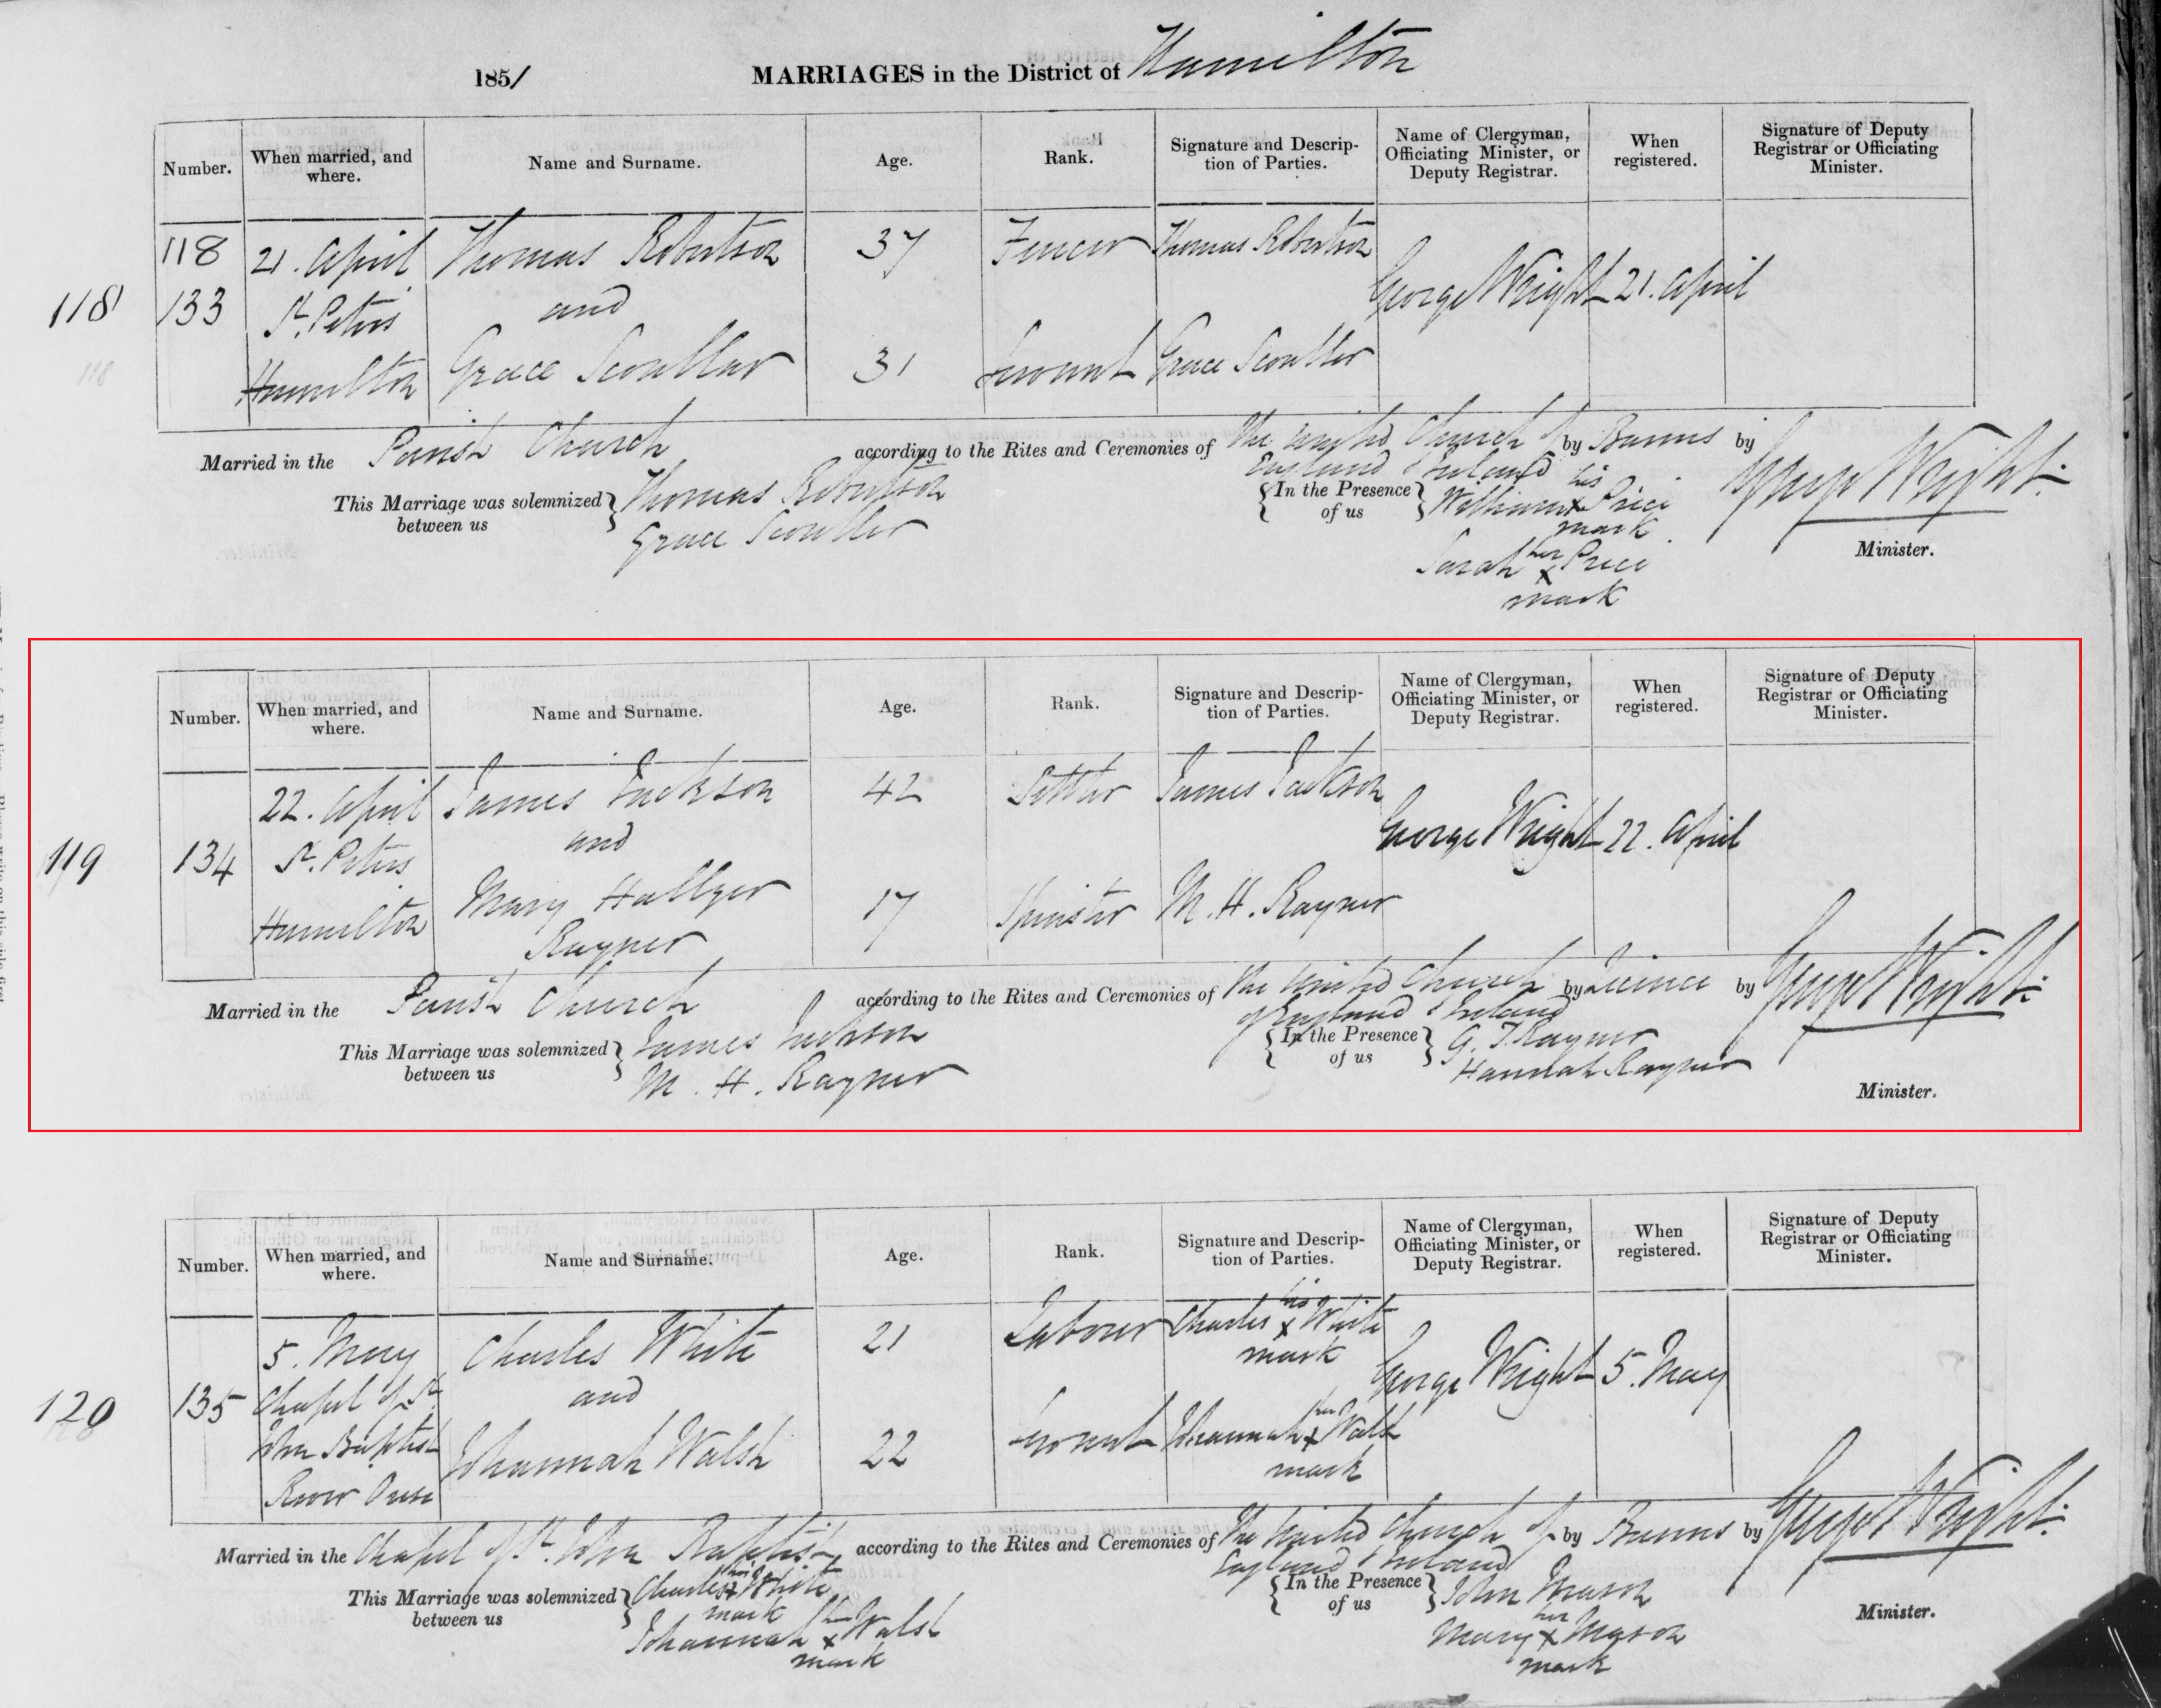 1851 MARRIAGES in the District of Hamilton
Number. When married, and where. Name and Surname. Age. Rank. Signature and Description of Parties. Name of Clergyman, Officiating Minister, or Deputy Registrar. When registered. Signature of Deputy Registrar or Officiating Minister.
118
118 21. April Thomas Robertson 37 Fencer Thomas Robertson
133 St. Peters and George Wright 21. April
Hamilton Grace Scoullar 31 Servant Grace Scouller
Married in the Parish Church according to the Rites and Ceremonies of The United Church of by Banns by George Wright
England & Ireland
This Marriage was solemnized between us Thomas Robertson In the Presence of us William his x mark Price
Grace Scouller Sarah her x mark Price
Minister.
Number. When married, and where. Name and Surname. Age. Rank. Signature and Description of Parties. Name of Clergyman, Officiating Minister, or Deputy Registrar. When registered. Signature of Deputy Registrar or Officiating Minister.
22. April James Jackson 42 Settler James Jackson
119 134 St. Peters and George Wright 22. April
Hamilton Mary Hallyer 17 Spinster M. H. Rayner
Rayner
Married in the Parish Church according to the Rites and Ceremonies of The United Church by Licence by George Wright
of England & Ireland
This Marriage was solemnized between us James Jackson In the Presence of us G. T. Rayner
M. H. Rayner Hannah Rayner
Minister.
Number. When married, and where. Name and Surname. Age. Rank. Signature and Description of Parties. Name of Clergyman, Officiating Minister, or Deputy Registrar. When registered. Signature of Deputy Registrar or Officiating Minister.
5. May Charles White 21 Labourer Charles his x mark White
120 135 Chapel of St. and George Wright 5. May
John Baptist Johannah Walsh 22 Servant Johannah her x mark Walsh
River Ouse
Married in the Chapel of St. John Baptist according to the Rites and Ceremonies of The United Church of by Banns by George Wright
England & Ireland
This Marriage was solemnized between us Charles his x mark White In the Presence of us John Mason
Johannah her x mark Walsh Mary her x mark Myson
Minister.